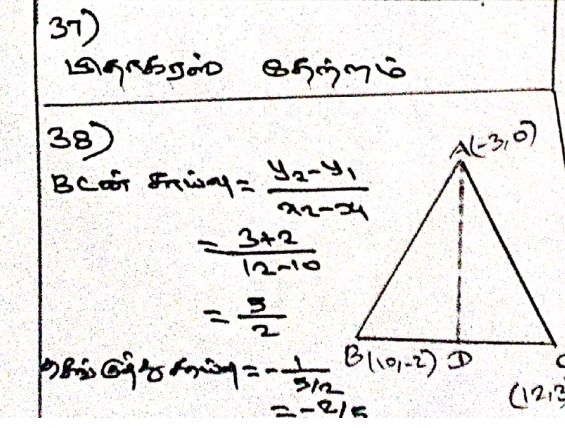 37)
பிதாகரஸ் தேற்றம்
38)
BCன் சாய்வு = \frac{y2-y1}{x2-x1}
= \frac{3+2}{12-10}
= \frac{5}{2}
சாய்வு = -\frac{1}{5/2}
= -2/5
A(-3,0)
B(10,-2) D C
(12,3